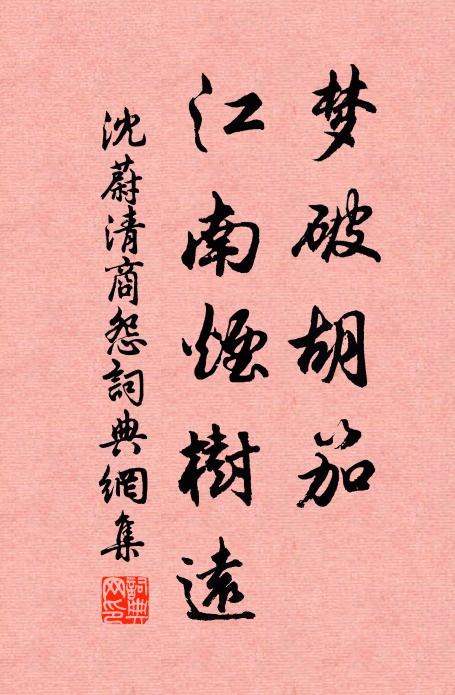 梦破胡笳
江南煙樹遠
沈蔚清商怨詞典網集
詞典網印